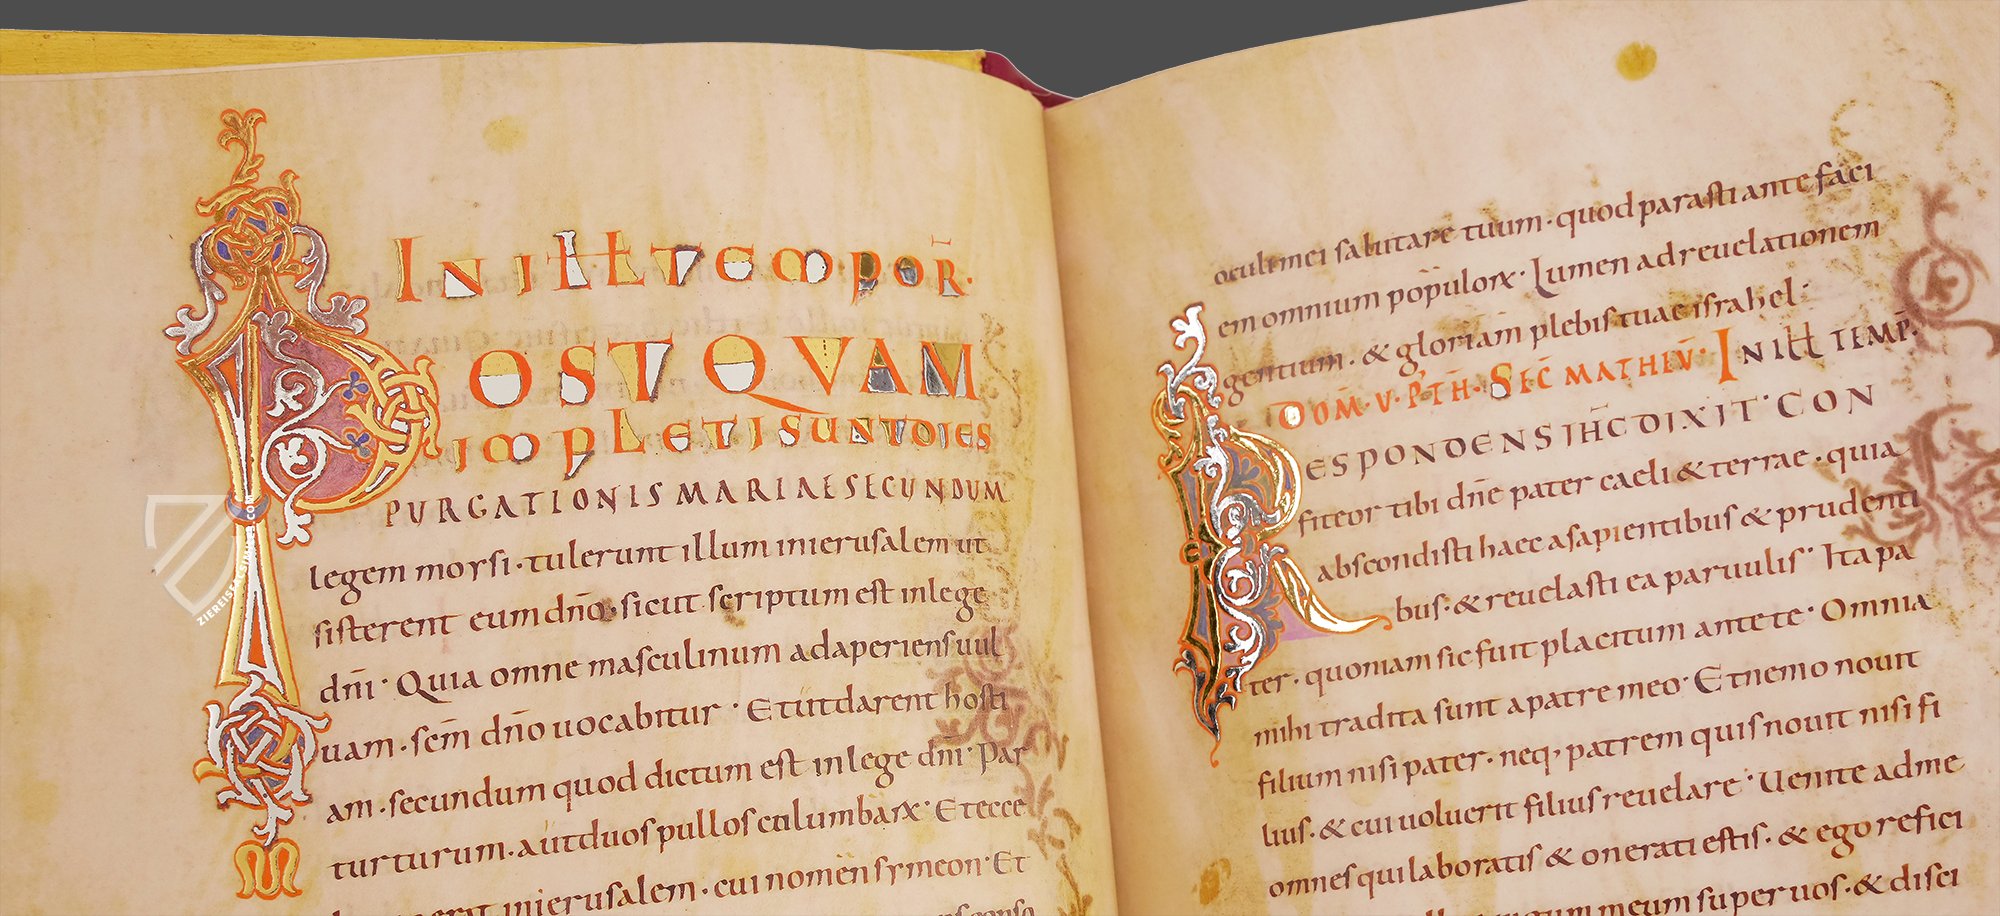 IN ILL TEMPOR̄·
POSTQVAM
IMPLETI SUNT DIES
PURGATIONIS MARIAE SECUNDUM
legem moysi· tulerunt illum inierusalem ut
sisterent eum dn̄o· sicut scriptum est inlege
dn̄i· Quia omne masculinum adaperiens uul
uam· sc̄m dn̄o uocabitur· Et ut darent hosti
am· secundum quod dictum est inlege dn̄i· Par
turturum· aut duos pullos columbarꝝ· Et ecce
inierusalem· cui nomen symeon· Et
oculi mei salutare tuum· quod parasti ante faci
em omnium populorꝝ· Lumen ad reuelationem
gentium· & gloriam plebis tuae israhel·
DOM· V· P· TH̄· SEC̄ MATHEŪ· IN ILL TEMP̄·
RESPONDENS IHC̄ DIXIT· CON
fiteor tibi dn̄e pater caeli & terrae· quia
abscondisti haec asapientibus & prudenti
bus· & reuelasti ea paruulis· Ita pa
ter· quoniam sic fuit placitum ante te· Omnia
mihi tradita sunt apatre meo· Et nemo nouit
filium nisi pater· neq; patrem quis nouit nisi fi
lius· & cui uoluerit filius reuelare· Uenite adme
omnes qui laboratis & onerati estis· & ego refici
meum super uos· & disci
ZIEREIS FACSIMILES.COM